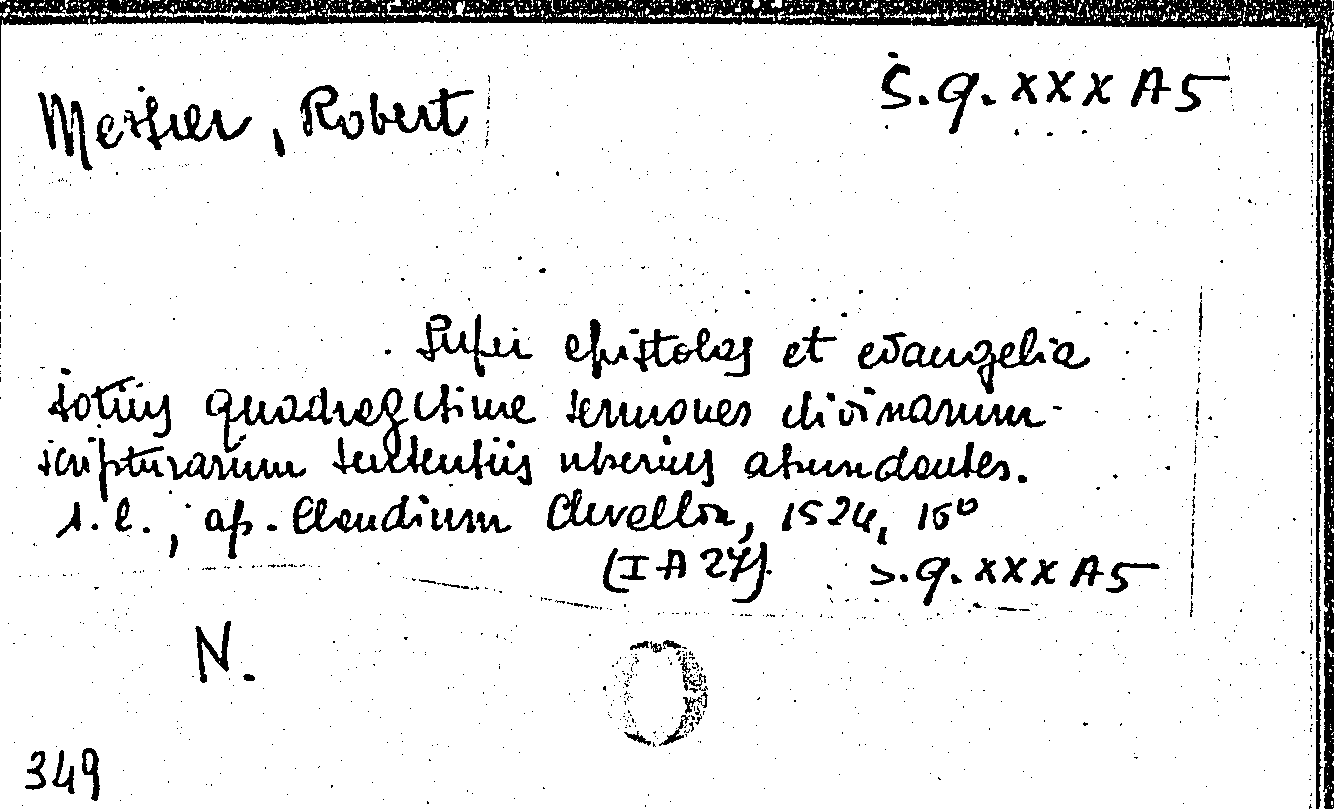 Messier, Robert
S.q. XXX A5
Super epistolas et evangelia
totius quadragesime sermones divinarum
scripturarum sententiis uberius abundantes.
s.l., ap. Claudium Chevellon, 1524, 16°
(I A 27). S.q. XXX A5
N.
349